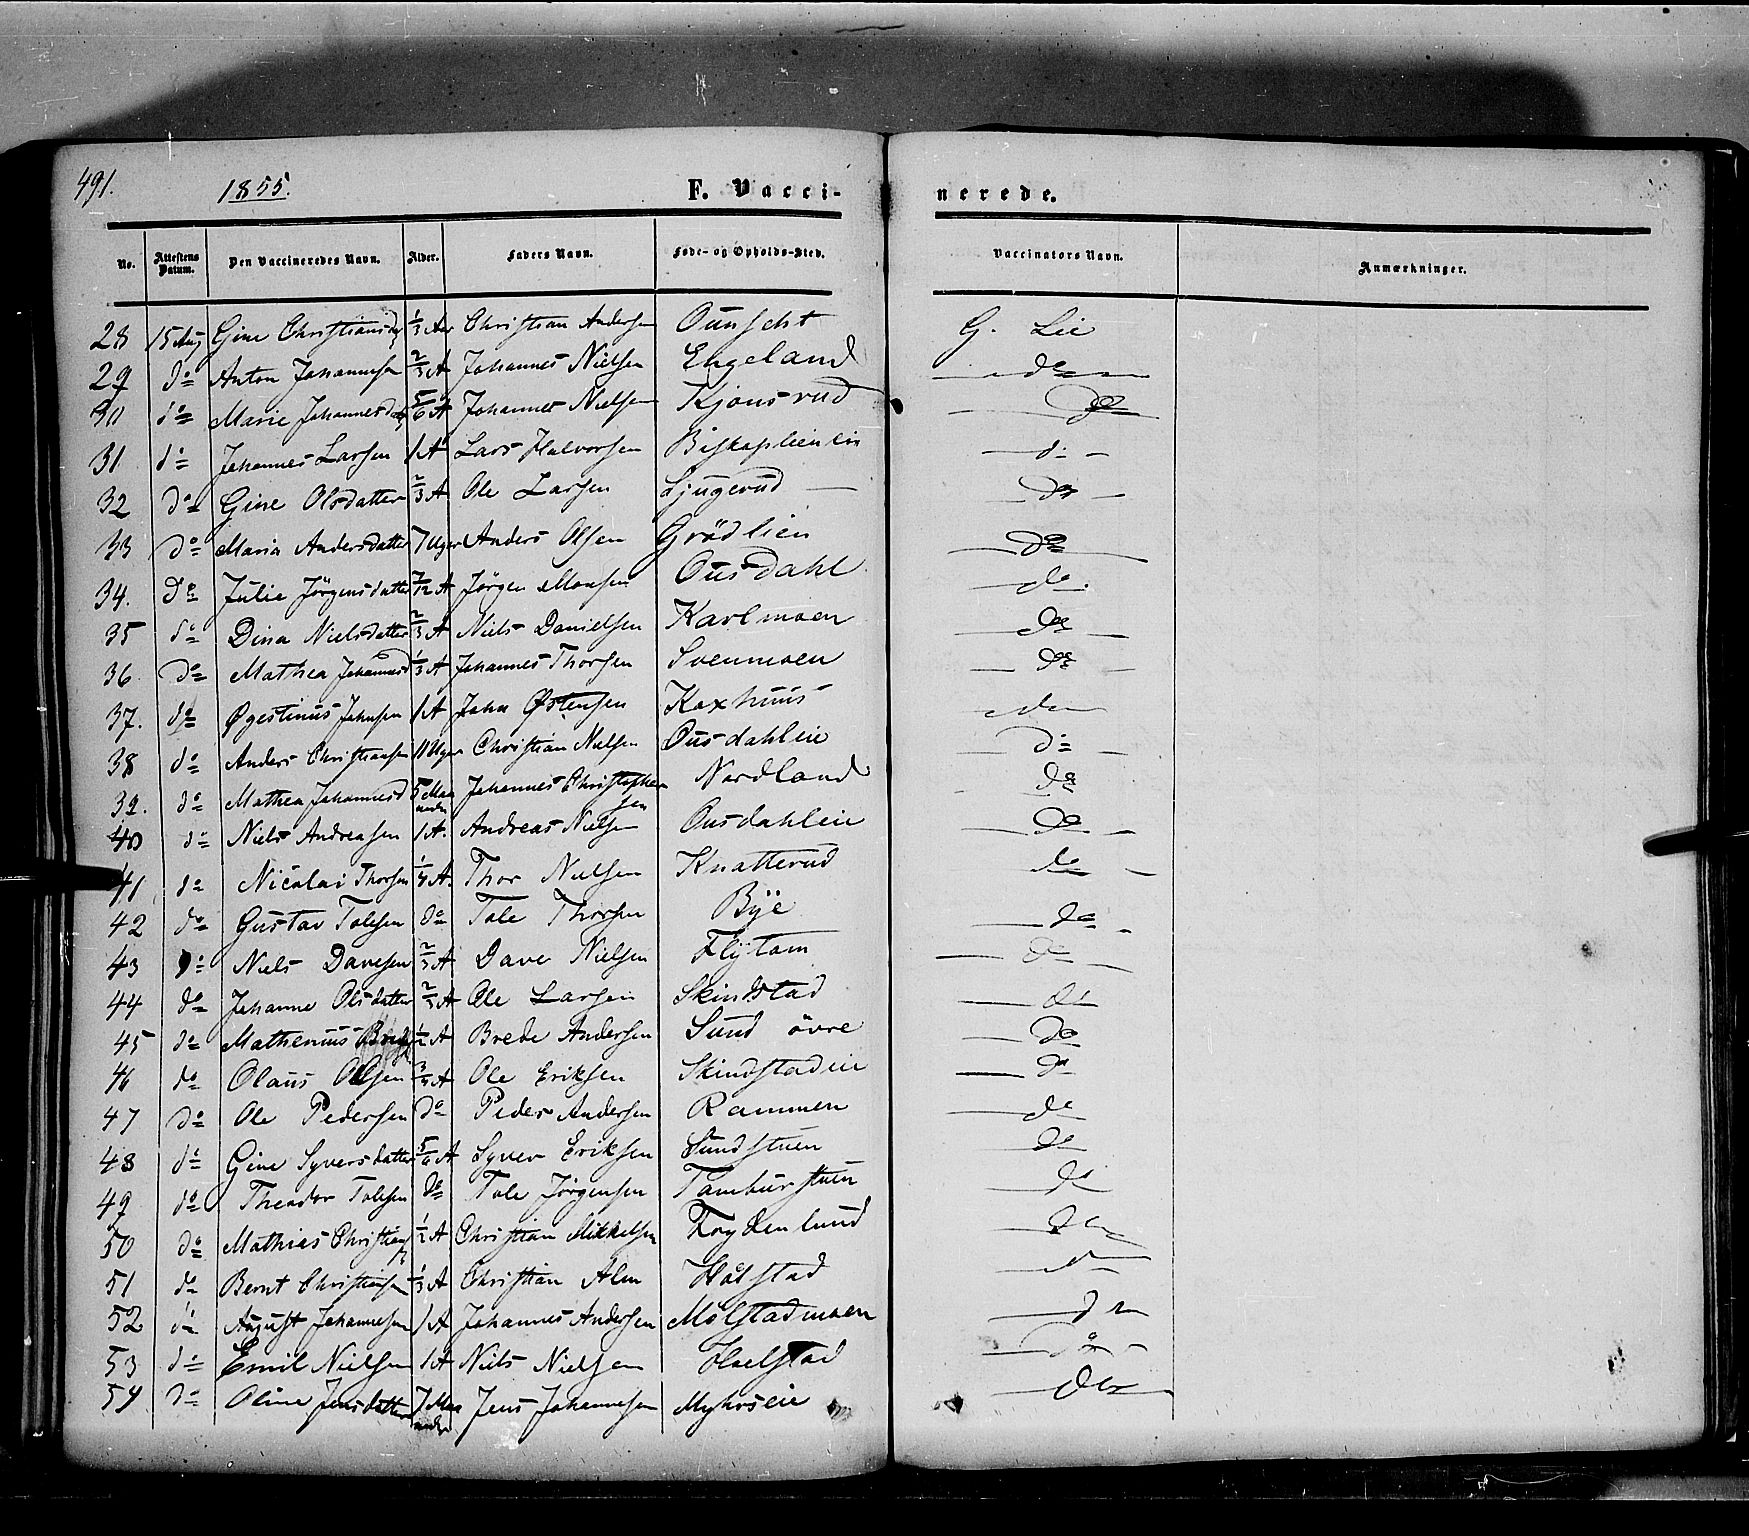 491. 1855. F. Vacci- nerede.
No. Attestens Datum. Den Vaccineredes Navn. Alder. Faders Navn. Føde- og Opholds-Sted. Vaccinators Navn. Anmærkninger.
28 15 Aug Gine Christiansd 1/3 Aar Christian Andersen G. Lie
29 do Anton Johannesen 2/3 A Johannes Nielsen Engeland do
30 do Marie Johannesd 5/6 A Johannes Nielsen Kjønsrud do
31 do Johannes Larsen 1 A Lars Halvorsen Biskoplieneie do
32 do Gine Olsdatter 2/3 A Ole Larsen Ljugerud do
33 do Maria Andersdatter 7 Uger Anders Olsen Grödlien do
34. do Julie Jörgensdatter 7/12 A Jörgen Monsen Ousdahl do.
35 do Dina Nielsdatter 2/3 A Niels Danielsen Karlmoen do
36 do Mathea Johannesd 1/3 A Johannes Thorsen Svenmoen do
37. do Øgestinus Johnsen 1 A John Østensen Koxhuus do
38 do Anders Christiansen 11 Uger Christian Nielsen Ousdahleie do
39. do Mathea Johannesd 5 Maaneder Johannes Christophersen Nordland do
40 do Niels Andreasen 1 A. Andreas Nielsen Ousdahleie do
41 do Nicolai Thorsen 1/4 A. Thor Nielsen Knatterud do
42 do Gustav Tolesen do Tole Thorsen Bÿe do
43 do Niels Davesen 2/3 A Dave Nielsen Flÿtom do
44 do Johanne Olsdatter 2/3 A Ole Larsen Skindstad do
45 do Mathenius 1/2 A Brede Andersen Sund övre do
46 do Olaus Olsen 3/4 A Ole Eriksen Skindstadeie do
47 do Ole Pedersen do Peder Andersen Rammen do
48 do Gine Syversdatter 5/6 A Syver Eriksen Sundstuen do
49 do Theodor Tolesen do Tole Jörgensen Tamburstuen do
50 do Mathias Christians 1/2 A Christian Mikkelsen Frydenlund do
51 do Bernt Christiansen 1/3 A Christian Alm Holstad do
52 do August Johannesen 1 A Johannes Andersen Molstadmoen do
53 do Emil Nielsen 1 A Niels Nielsen Hoelstad do
54 do Oline Jensdatter 7 Maaneder Jens Johannesen Myhrseie do